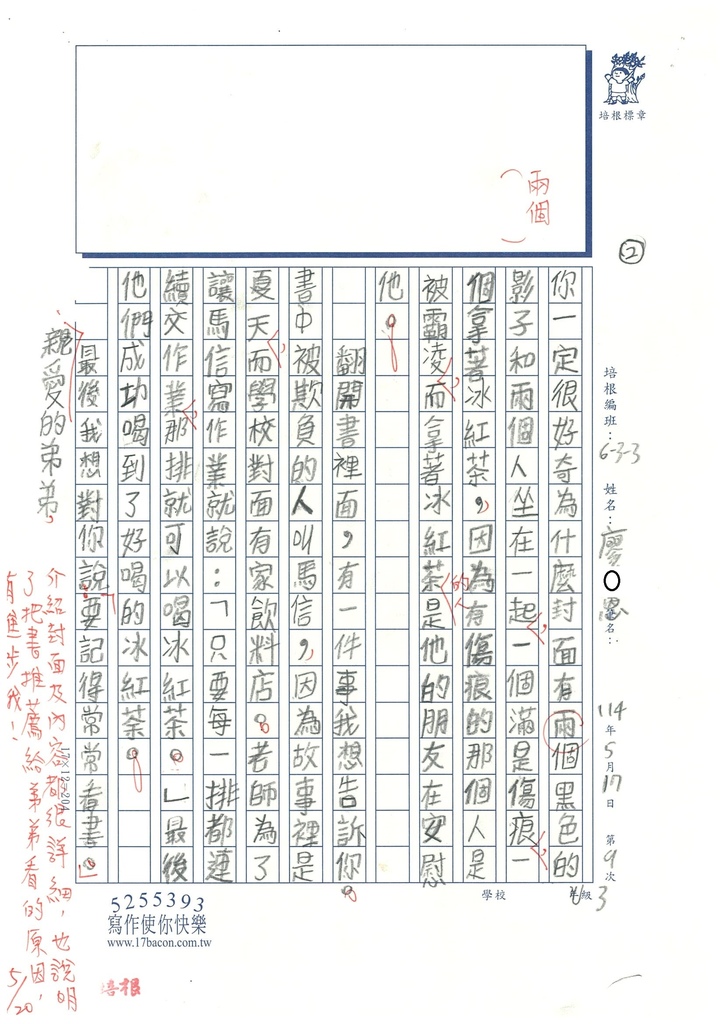 培根標章
②
培根編班：6-3-3
姓名：廖〇恩
114年5月17日 第9次
學校 年級 3
（兩個）
你一定很好奇為什麼封面有兩個黑色的
影子和兩個人坐在一起，一個滿是傷痕，一
個拿著冰紅茶，因為有傷痕的那個人是
被霸凌，而拿著冰紅茶的人是他的朋友在安慰
他。
翻開書裡面，有一件事我想告訴你。
書中被欺負的人叫馬信，因為故事裡是
夏天，而學校對面有家飲料店。老師為了
讓馬信寫作業就說：「只要每一排都連
續交作業，那排就可以喝冰紅茶。」最後
他們成功喝到了好喝的冰紅茶。
最後我想對你說：「要記得常常看書。」
親愛的弟弟，
17×12=204
介紹封面及內容都很詳細，也說明
了把書推薦給弟弟看的原因，
有進步哦！
5/20
5255393
寫作使你快樂
www.17bacon.com.tw
培根